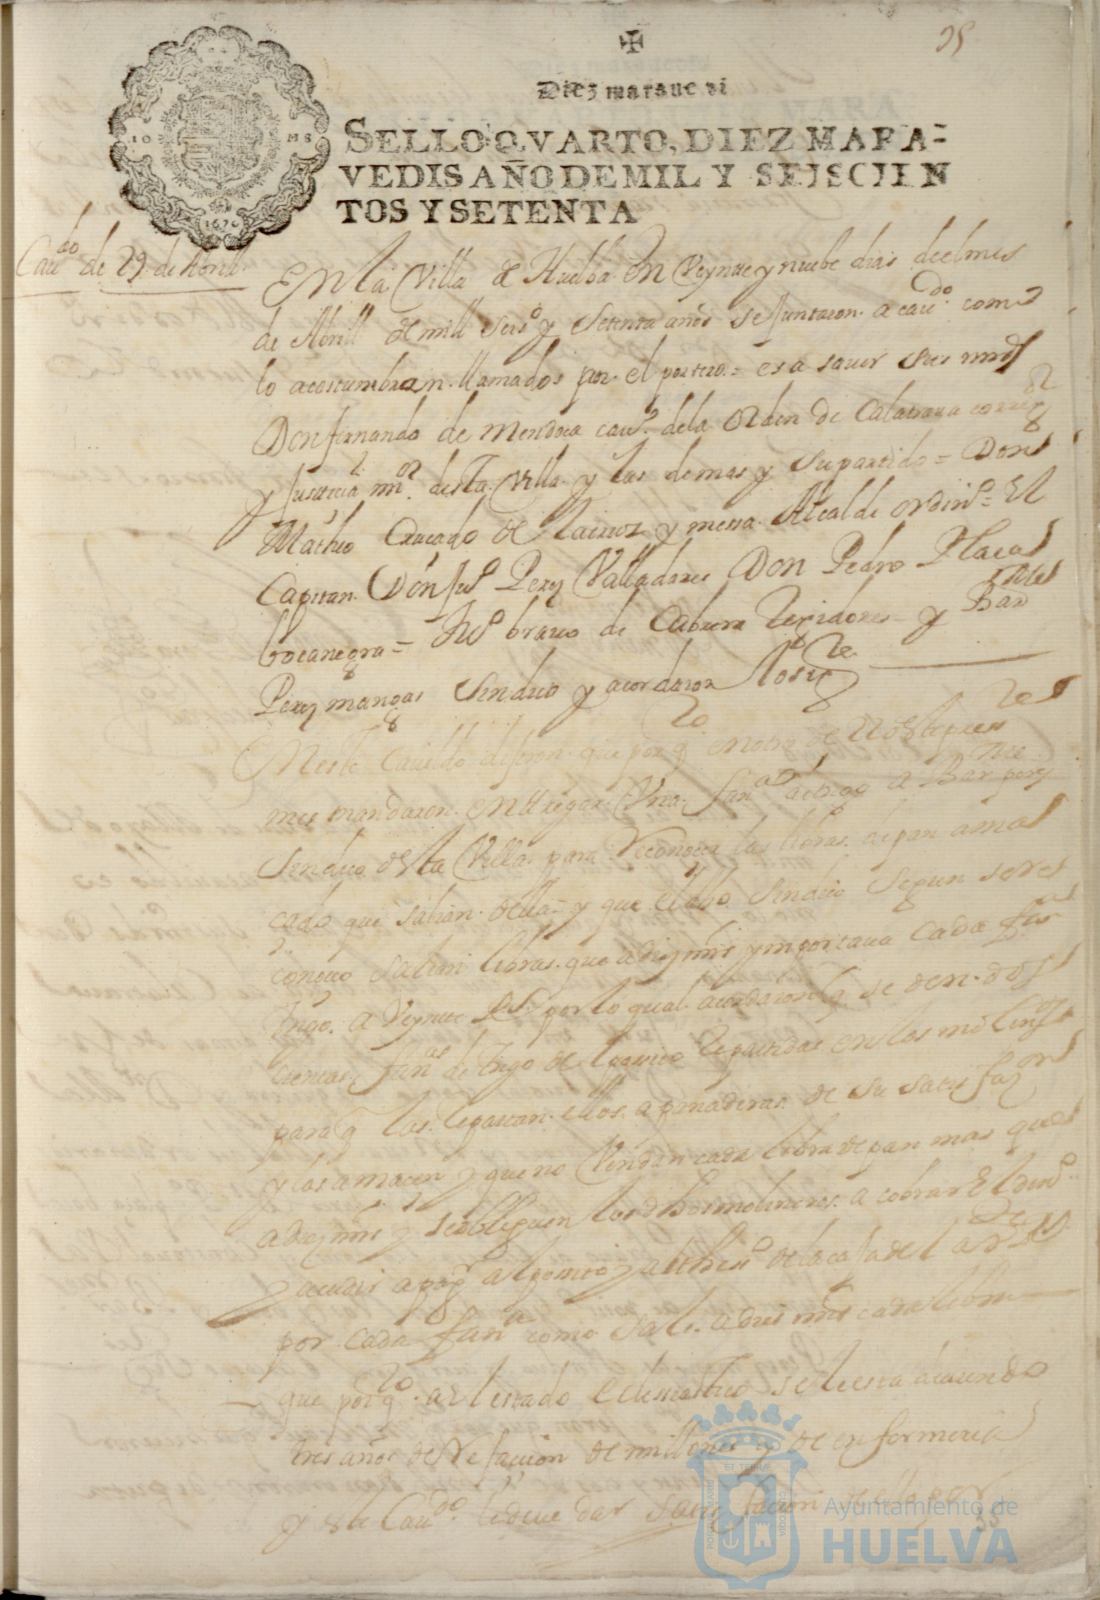 35
Diez marauedi
SELLO QVARTO, DIEZ MARA-
VEDIS AÑO DE MIL Y SEISCIEN
TOS Y SETENTA
1670
Caudo de 29 de Abrill
En la Villa de Huelba en Veynte y nuebe dias deel mes
de Abrill de mill seiso y setenta años se Juntaron a caudo como
lo acostumbran llamados por el portero = es a sauer sus mrds
Don fernando de Mendoca cauo de la orden de Calatraua corregor
y Justicia mor desta Villa y las demas y su partido = Don
Matheo Quecado de y messa Alcalde ordino = El
Capitan Don Juo Perez Valladares Don Pedro Placa
bocanegra = Juo brauo de Cabrera Rexidores y Bar
Perez mangas sindico y acordaron lo sigte
En este Cauildo dijeron que por qto en otro de
mes mandaron entregar Vna fana de trigo a Bar perez
Sindico desta Villa para Reconocer las libras de pan ama
cado que salian della y que el dho Sindico segun se re
conocio salieron libras que a diez mrs ymportaua cada fana
trigo a Veynte Rs por lo qual acordaron q se den dos
cientas fans de trigo de el posito repartidas en los molinos
para q las repartan ellos a panaderas de su satisfazon
y las amacen y que no Vendan cada libra de pan mas que
a diez mrs y se obliguen los dhos molineros a cobrar el dino
y acudir a pagar al posito y al thesro de la casa
por cada fana como sale a diez mrs cada libra
que por qto al estado eclesiastico se le esta deuiendo
tres años de Refaccion de millones y de enfermeria
y este Caudo le deue dar satisfacion
35
Ayuntamiento de
HUELVA